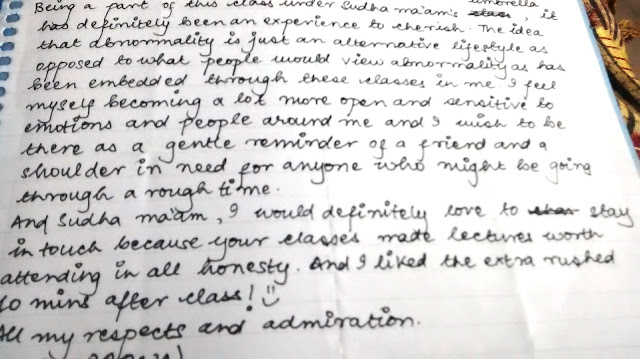 Being a part of this class under Sudha ma'am's umbrella, it
has definitely been an experience to cherish. The idea
that abnormality is just an alternative lifestyle as
opposed to what people would view abnormality as has
been embedded through these classes in me. I feel
myself becoming a lot more open and sensitive to
emotions and people around me and I wish to be
there as a gentle reminder of a friend and a
shoulder in need for anyone who might be going
through a rough time.
And Sudha ma'am, I would definitely love to stay
in touch because your classes made lectures worth
attending in all honesty. And I liked the extra rushed
10 mins after class! :)
All my respects and admiration.